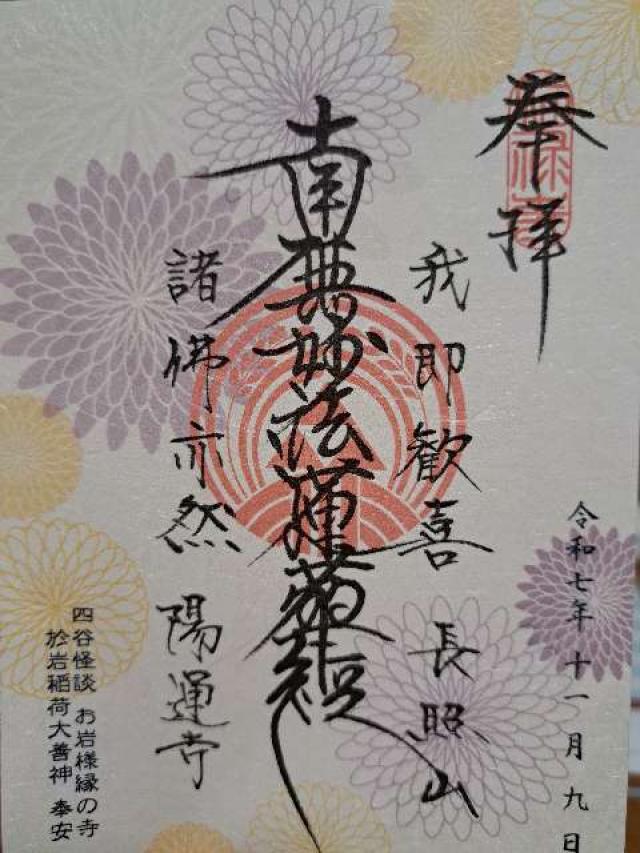 奉拝
令和七年十一月九日
我即歓喜 長照山
南無妙法蓮華経
諸佛亦然 陽運寺
四谷怪談 お岩様縁の寺
於岩稲荷大善神 奉安